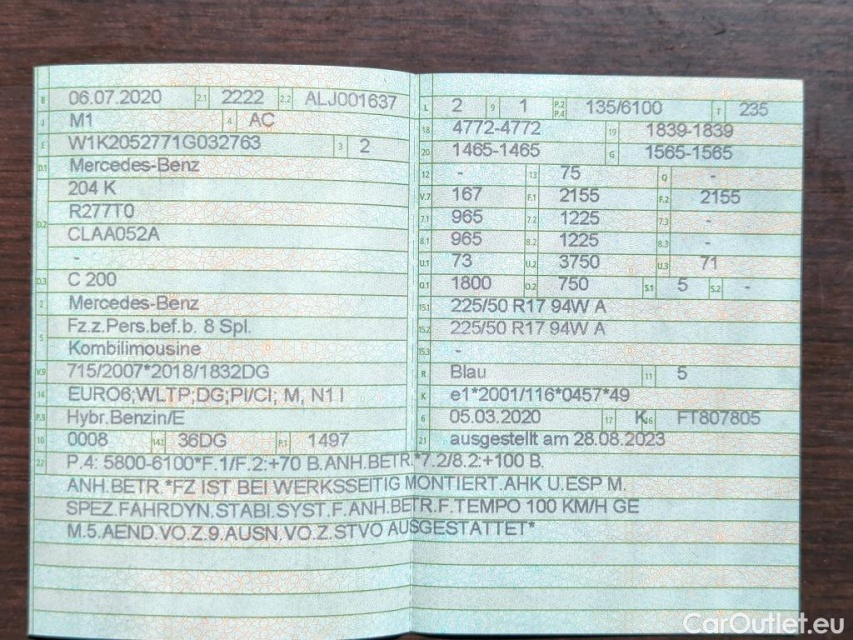 B 06.07.2020 2.1 2222 2.2 ALJ001637
J M1 4 AC
E W1K2052771G032763 3 2
D.1 Mercedes-Benz
204 K
R277T0
D.2 CLAA052A
-
D.3 C 200
2 Mercedes-Benz
5 Fz.z.Pers.bef.b. 8 Spl.
Kombilimousine
V.9 715/2007*2018/1832DG
14 EURO6;WLTP;DG;PI/CI; M, N1 I
P.3 Hybr.Benzin/E
10 0008 14.1 36DG P.1 1497
L 2 9 1 P.2 P.4 135/6100 T 235
18 4772-4772 19 1839-1839
20 1465-1465 G 1565-1565
12 - 13 75 Q -
V.7 167 F.1 2155 F.2 2155
7.1 965 7.2 1225 7.3 -
8.1 965 8.2 1225 8.3 -
U.1 73 U.2 3750 U.3 71
O.1 1800 O.2 750 S.1 5 S.2 -
15.1 225/50 R17 94W A
15.2 225/50 R17 94W A
15.3 -
R Blau 11 5
K e1*2001/116*0457*49
6 05.03.2020 17 K 16 FT807805
21 ausgestellt am 28.08.2023
22 P.4: 5800-6100*F.1/F.2:+70 B.ANH.BETR.*7.2/8.2:+100 B.
ANH.BETR.*FZ IST BEI WERKSSEITIG MONTIERT.AHK U.ESP M.
SPEZ.FAHRDYN.STABI.SYST.F.ANH.BETR.F.TEMPO 100 KM/H GE
M.5.AEND.VO.Z.9.AUSN.VO.Z.STVO AUSGESTATTET*
CarOutlet.eu